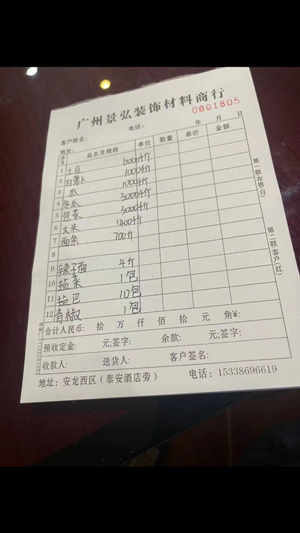 广州景弘装饰材料商行
0001805
客户姓名： 电话：
地址： 年 月 日
序号 品名及规格 单位 数量 单价 金额
1 土豆
2 红萝卜 1000斤
3 瓜 1000斤
4 冬瓜 3000斤
5 包菜 3000斤
6 大米 1400斤
7 面条 700斤
8
9 辣子面 4斤
10 盐菜 1包
11 盐巴
12 青椒 1包
合计人民币： 拾 万 仟 佰 拾 元 角¥:
预收定金： 元;签字： 余款： 元;签字：
收款人： 送货人： 客户签名：
地址：安龙西区（泰安酒店旁） 电话：15338696619
第一联存根(白)
第二联客户(红)